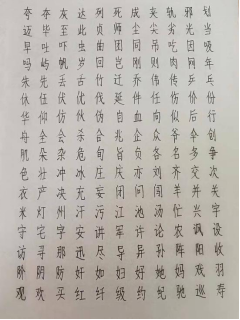 夸 夺 灰 达 列 死 成 夹 轨 邪 划
迈 毕 至 此 贞 师 尘 尖 劣 光 当
早 吐 吓 虫 曲 团 同 吊 吃 因 吸
吗 屿 帆 岁 回 岂 刚 则 肉 网 年
朱 先 丢 舌 竹 迁 乔 伟 传 乒 乓
休 伍 伏 优 伐 延 件 任 伤 价 份
华 仰 仿 伙 伪 自 血 向 似 后 行
舟 全 会 杀 合 兆 企 众 爷 伞 创
肌 朵 杂 危 旬 旨 负 各 名 多 争
色 壮 冲 冰 庄 庆 亦 刘 齐 交 次
衣 产 决 充 妄 闭 问 闯 羊 并 关
米 灯 州 汗 污 江 池 汤 忙 兴 宇
守 宅 字 安 讲 军 许 论 农 讽 设
访 寻 那 迅 尽 导 异 孙 阵 阳 收
阶 阴 防 奸 如 妇 好 她 妈 戏 羽
观 欢 买 红 纤 级 约 纪 驰 巡 寿